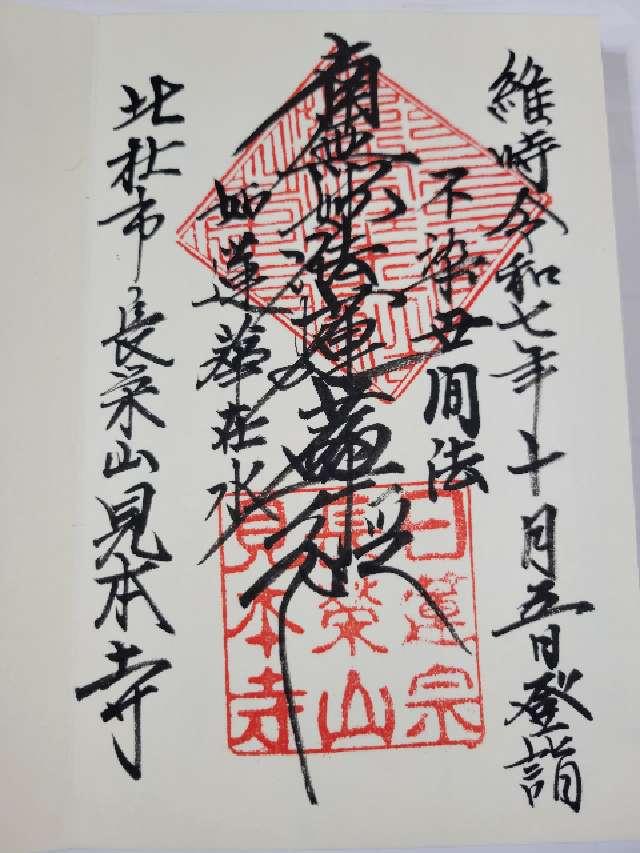 維時令和七年十月五日登詣
不染世間法
南無妙法蓮華経
如蓮華在水
北杜市長栄山見本寺
日蓮宗
長榮山
見本寺